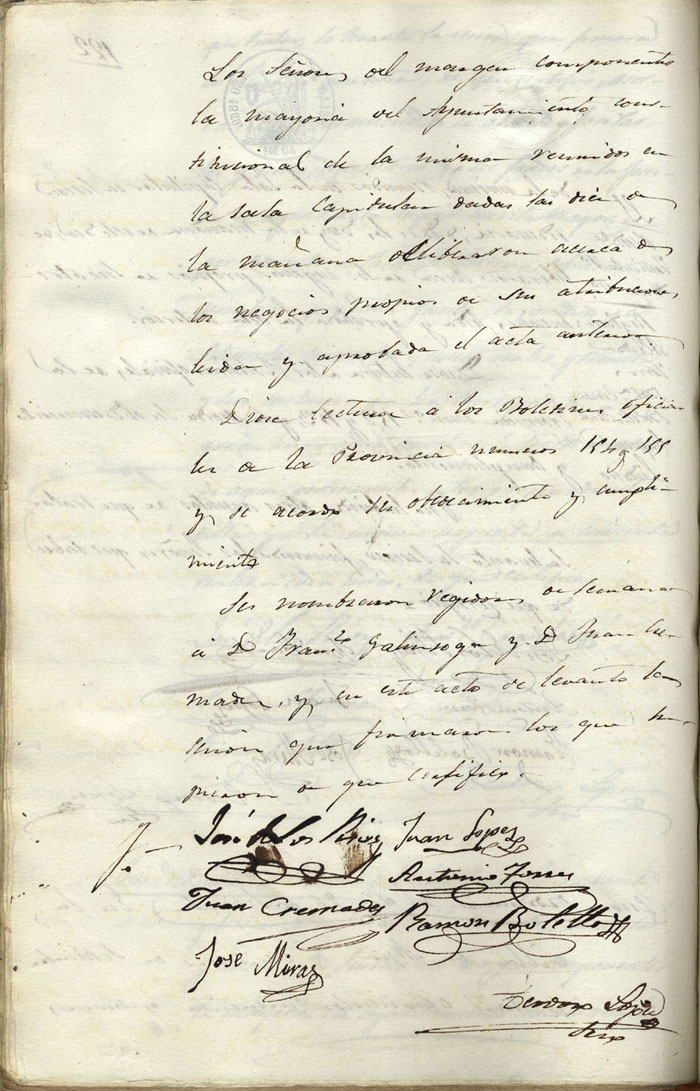 Los Señores del margen componente
la mayoria del Ayuntamiento cons-
titucional de la misma reunidos en
la sala Capitular dadas las diez de
la mañana deliberaron acerca de
los negocios propios de sus atribuciones
leida y aprobada el acta anterior
Diose lectura á los Boletines oficia-
les de la Provincia numeros 154 y 155
y se acordo su obedecimiento y cumpli-
miento
Se nombraron regidores de semana
á D. Franco. Galinsoga y D Juan Cre-
mades, y en este acto se levanto la
sesion que firmaron los que su-
pieron de que certifico.
José de los Rios Juan Lopez
Antonio Torres
Juan Cremades Ramon Botella
Jose Miras
Teodoro Lopez
Srio